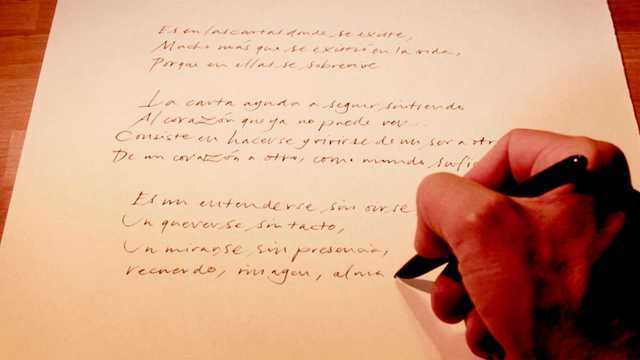 Es en las cartas donde se existe,
Mucho más que se existió en la vida,
Porque en ellas se sobrevive
La carta ayuda a seguir sintiendo
Al corazón que ya no puede ver...
Consiste en hacerse y irse de un ser a otro
De un corazón a otro, como mundo
Es un entenderse, sin oirse
Un quererse, sin tacto,
Un mirarse, sin presencia,
recuerdo, imagen, alma